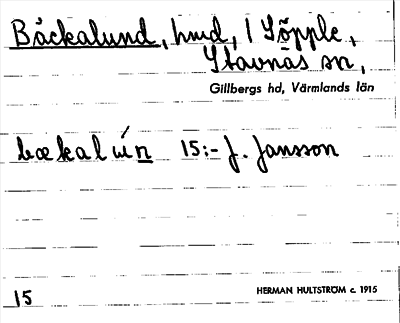 Bäckalund, hmd, 1 Söpple,
Stavnäs sn,
Gillbergs hd, Värmlands län
bækalúın 15:- J. Jansson
15 HERMAN HULTSTRÖM c. 1915